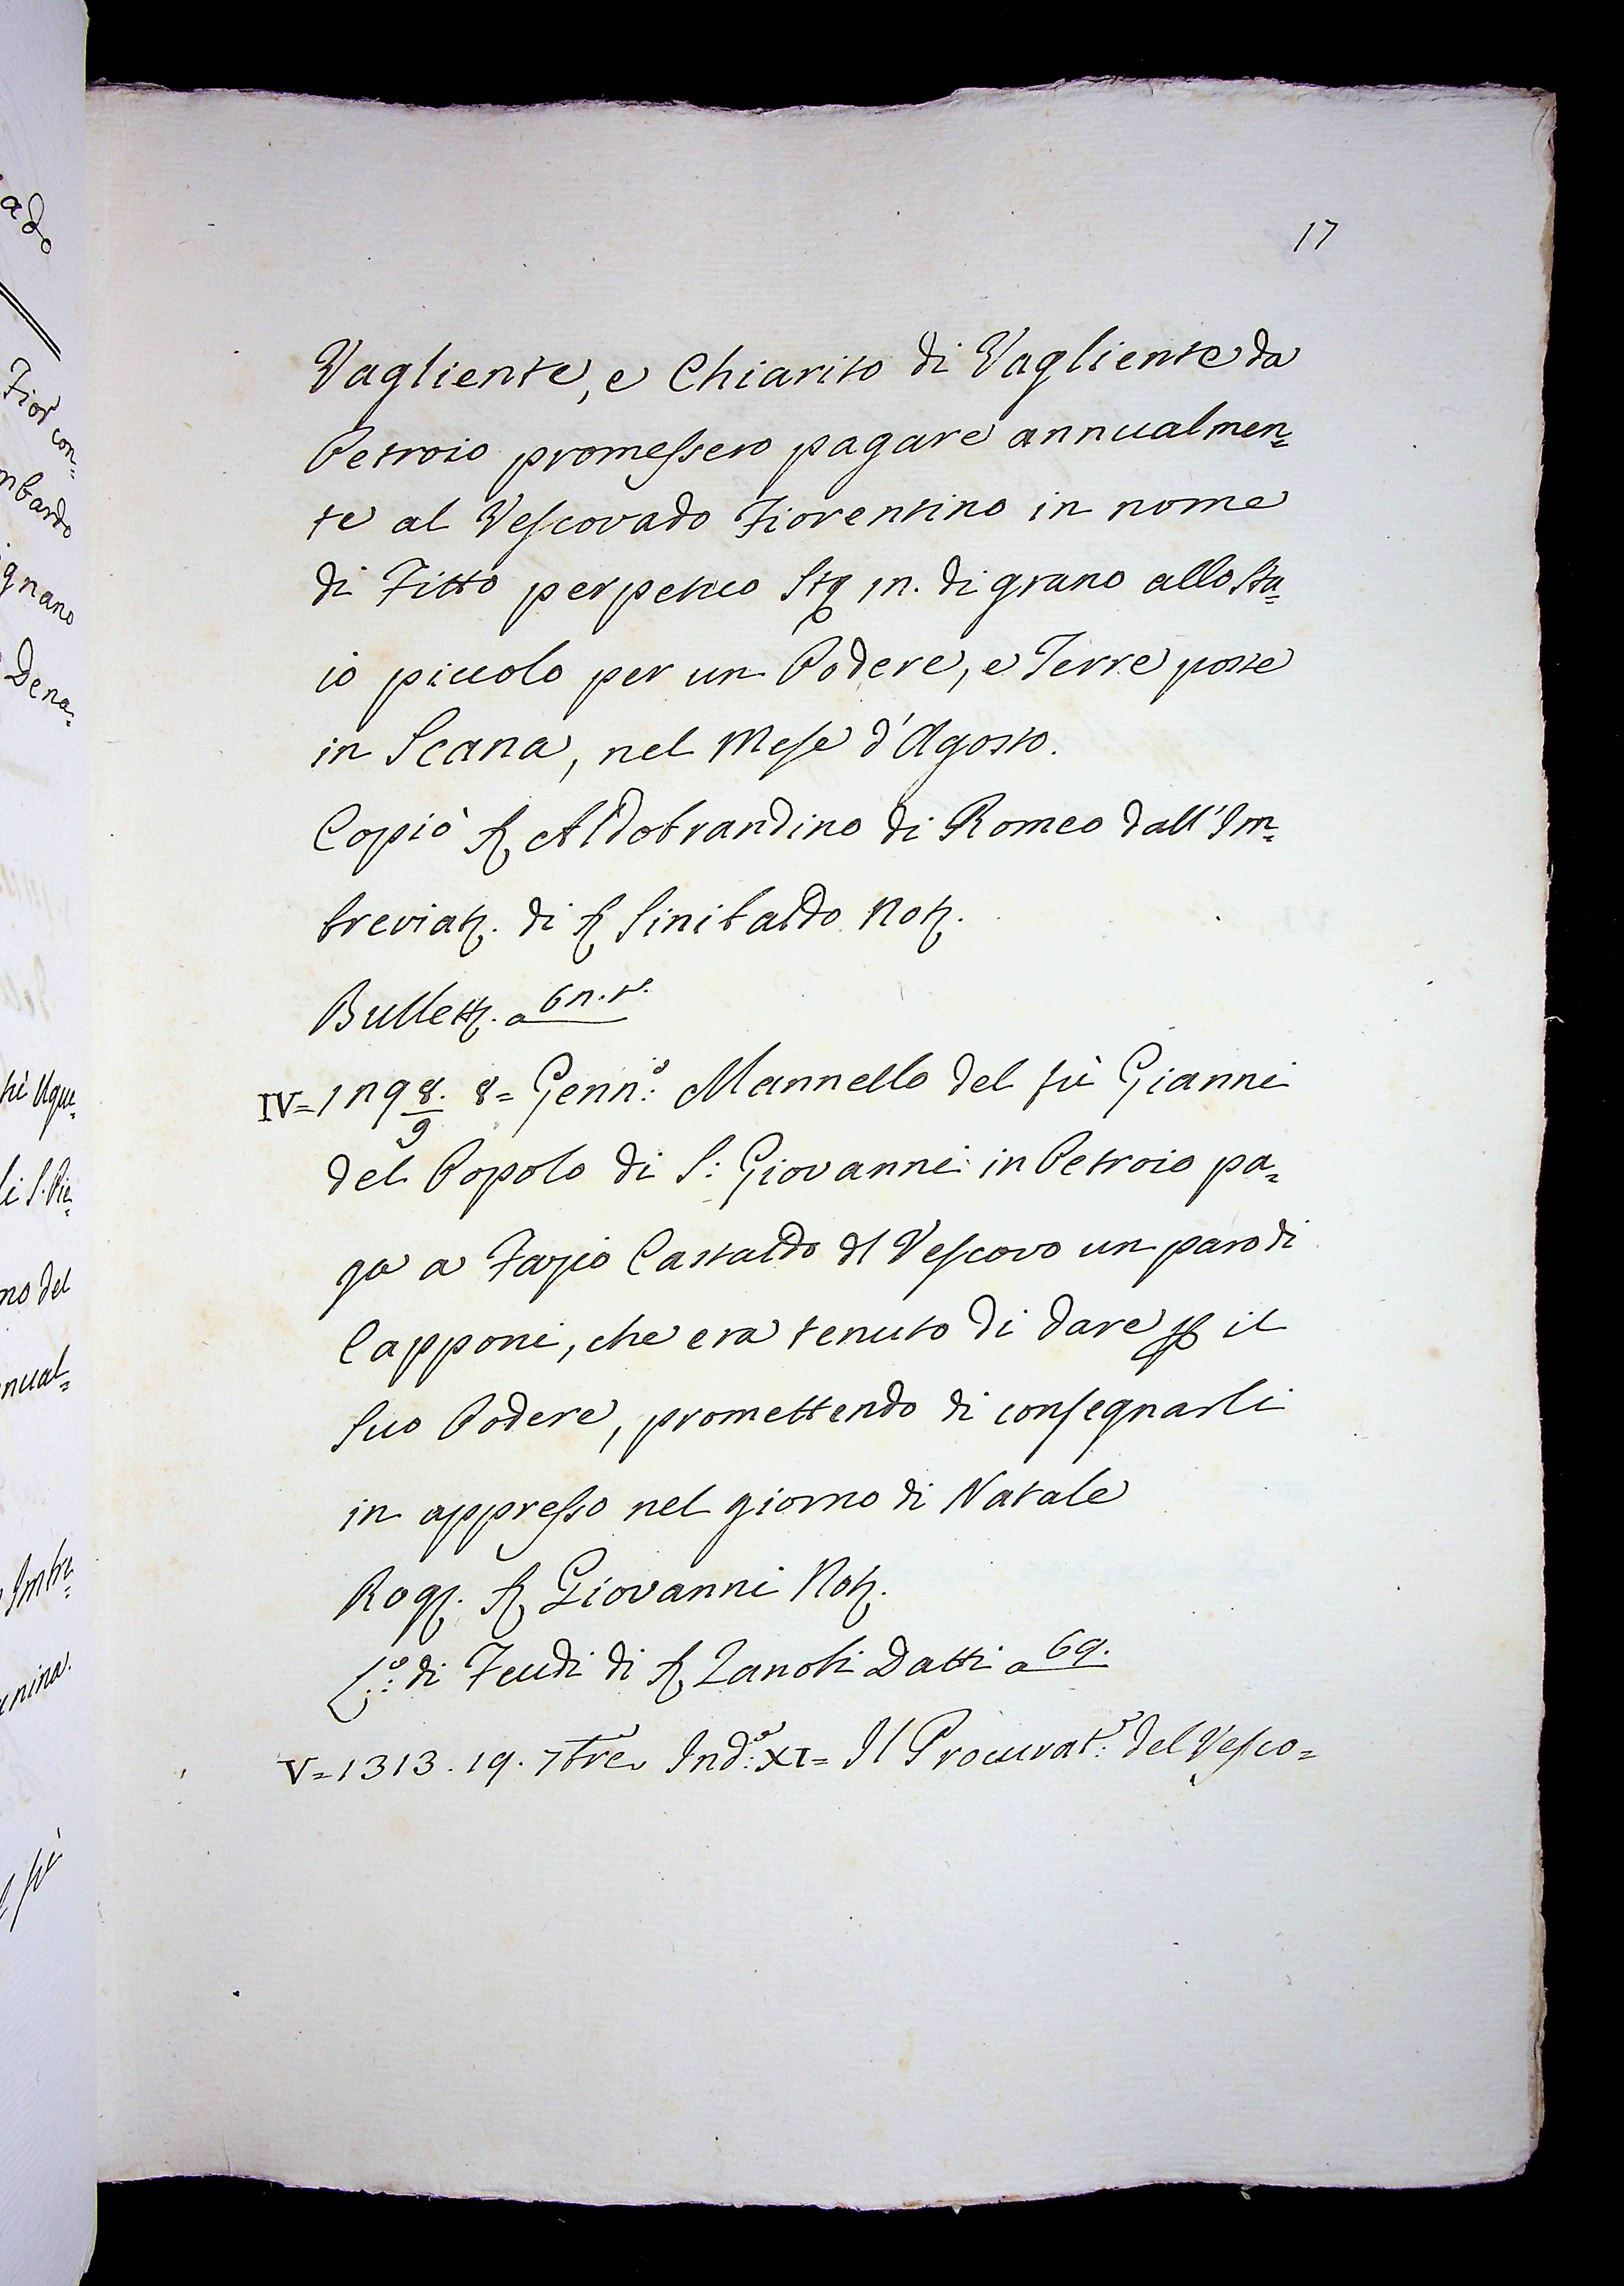 17
Vagliente, e Chiarito di Vagliente da
Petroio promessero pagare annualmen=
te al Vescovado Fiorentino in nome
di Fitto perpetuo di grano allo Sta=
io piccolo per un Podere, e Terre poste
in Scana, nel Mese d'Agosto.
Copiò Aldobrandino di Romeo dall'Im=
breviat. di Sinibaldo Not.
Bullett. a
IV= 8= Genn:º Mannello del fù Gianni
del Popolo di S: Giovanni in Petroio pa=
ga a Fazio Castaldo dl Vescovo un paro di
Capponi, che era tenuto di dare p il
Suo Podere, promettendo di consegnarli
in appresso nel giorno di Natale
Rog. Giovanni Not.
di Feudi di Zanobi Datti a 69.
V=1313. 19. 7bre Ind:e XI= Il Procurat:r del Vesco=
ado
Fior con=
mbardo
gnano
Dena=
fù Ugu=
li S. Pie=
no del
nual=
Imbre=
fù